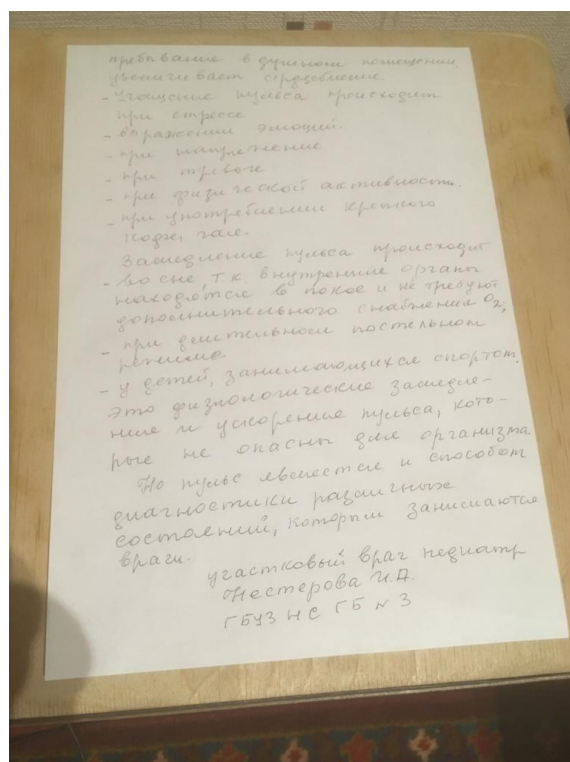 пребывание в душном помещении
увеличивает сердцебиение
- Учащение пульса происходит
при стрессе
- выражении эмоций.
- при напряжение
- при тревоге
- при физической активность.
- при употреблении крепкого
кофе, чая.
Замедление пульса происходит
- во сне, т.к. внутренние органы
находятся в покое и не требуют
дополнительного снабжения O2;
- при длительном постельном
режиме.
- у детей, занимающихся спортом.
Это физиологические замедле-
ние и ускорение пульса, кото-
рые не опасны для организма.
Но пульс является и способом
диагностики различных
состояний, которым занимаются
врачи.
участковый врач педиатр
Нестерова И.А.
ГБУЗ НС ГБ № 3